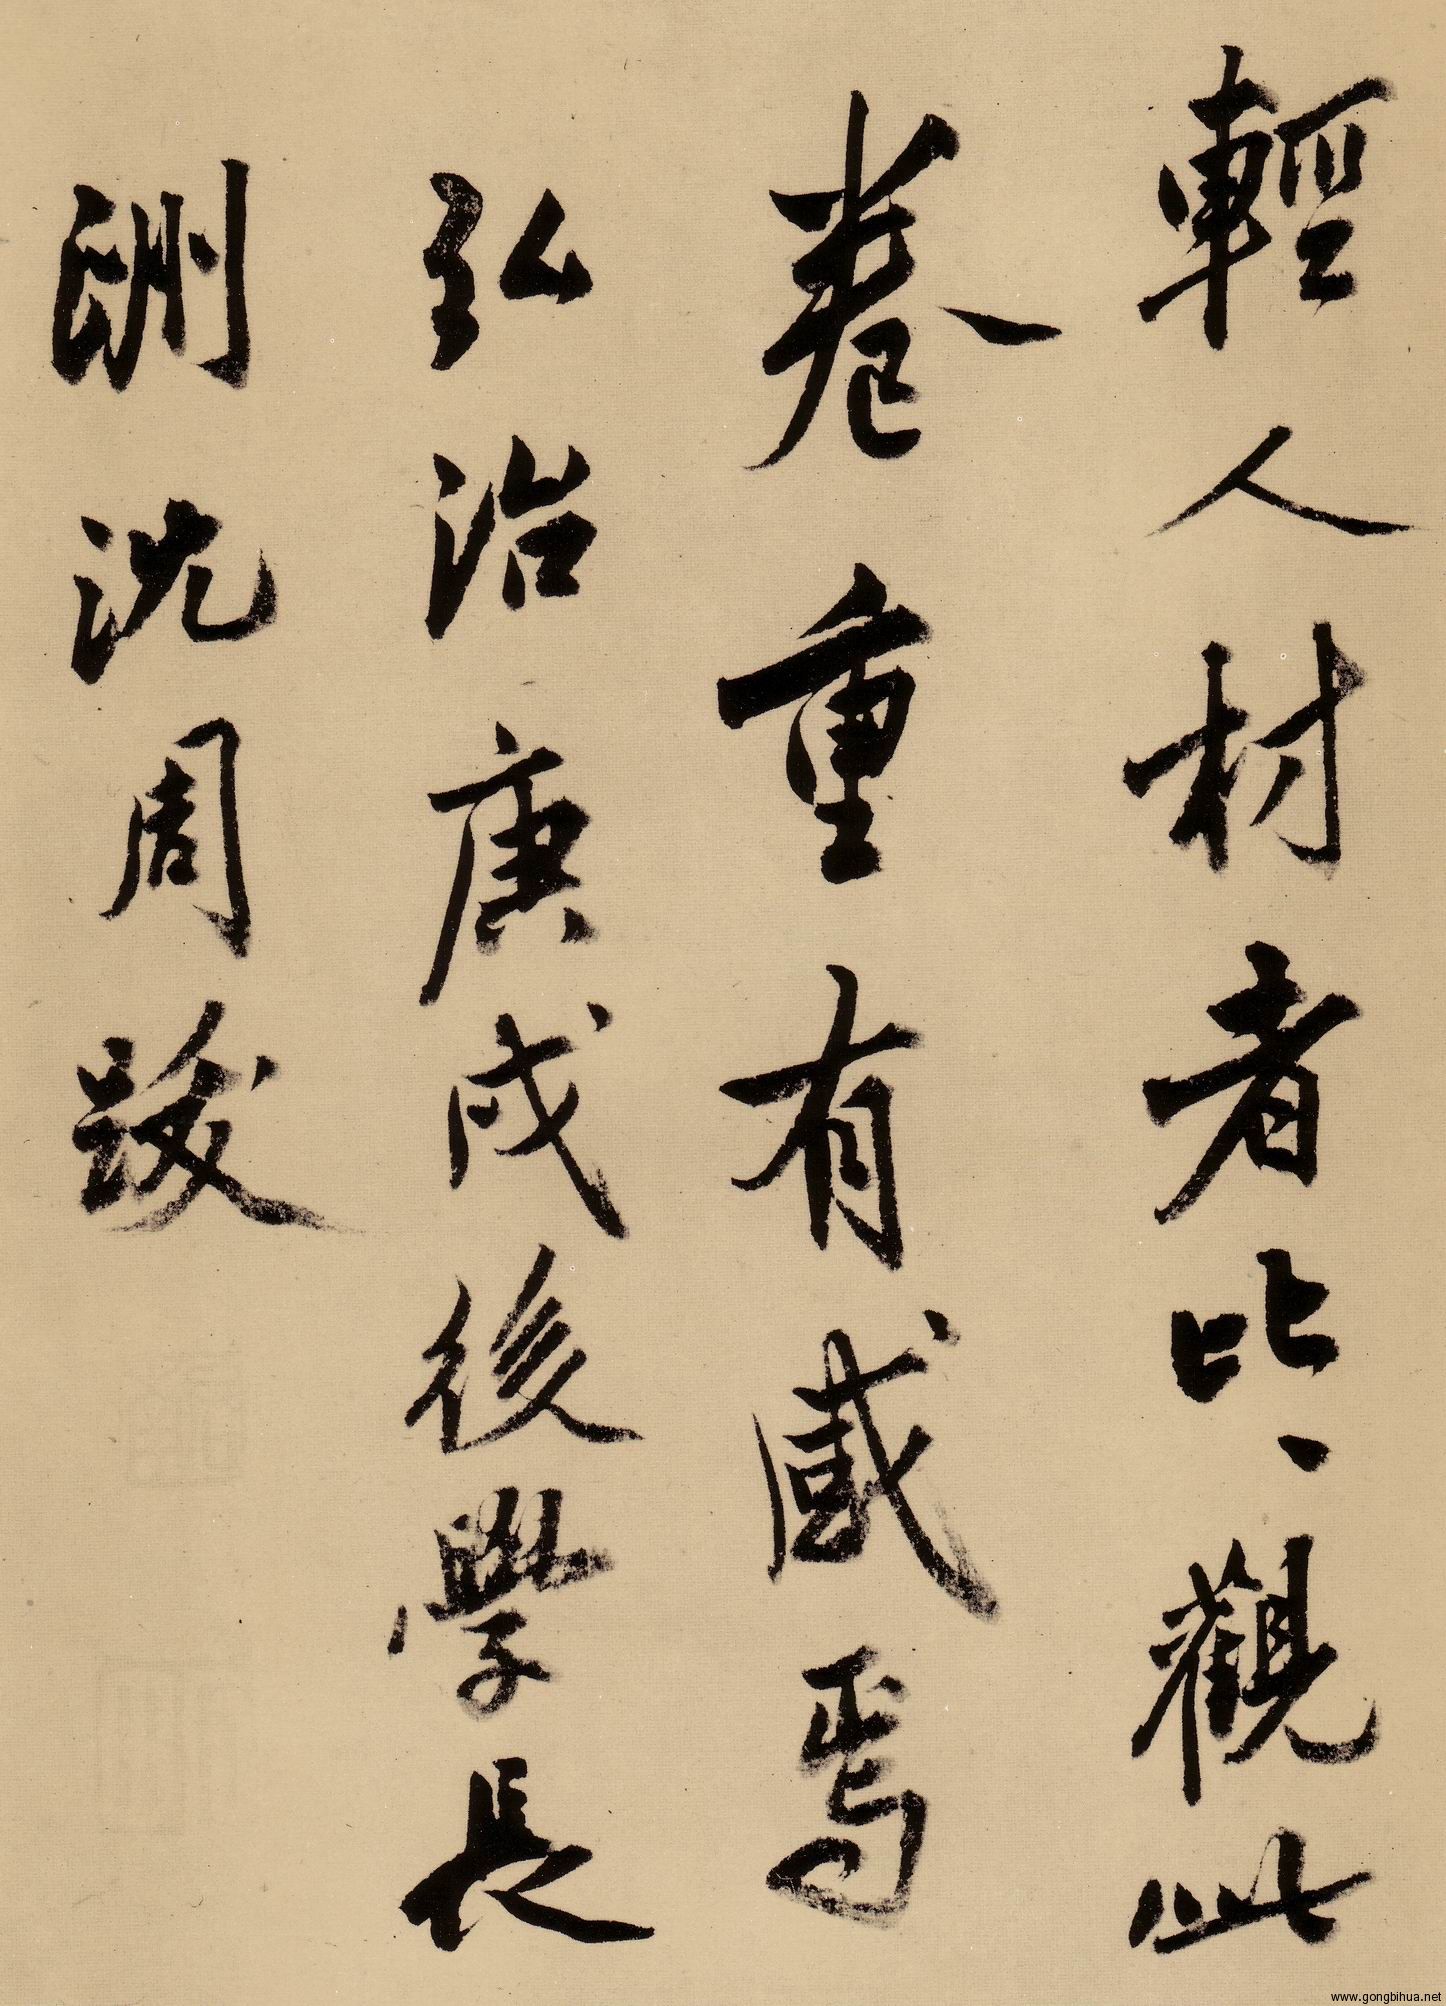 輕人材者比比觀此
卷重有感焉
弘治庚戌後學長
洲沈周跋
www.gongbihua.net